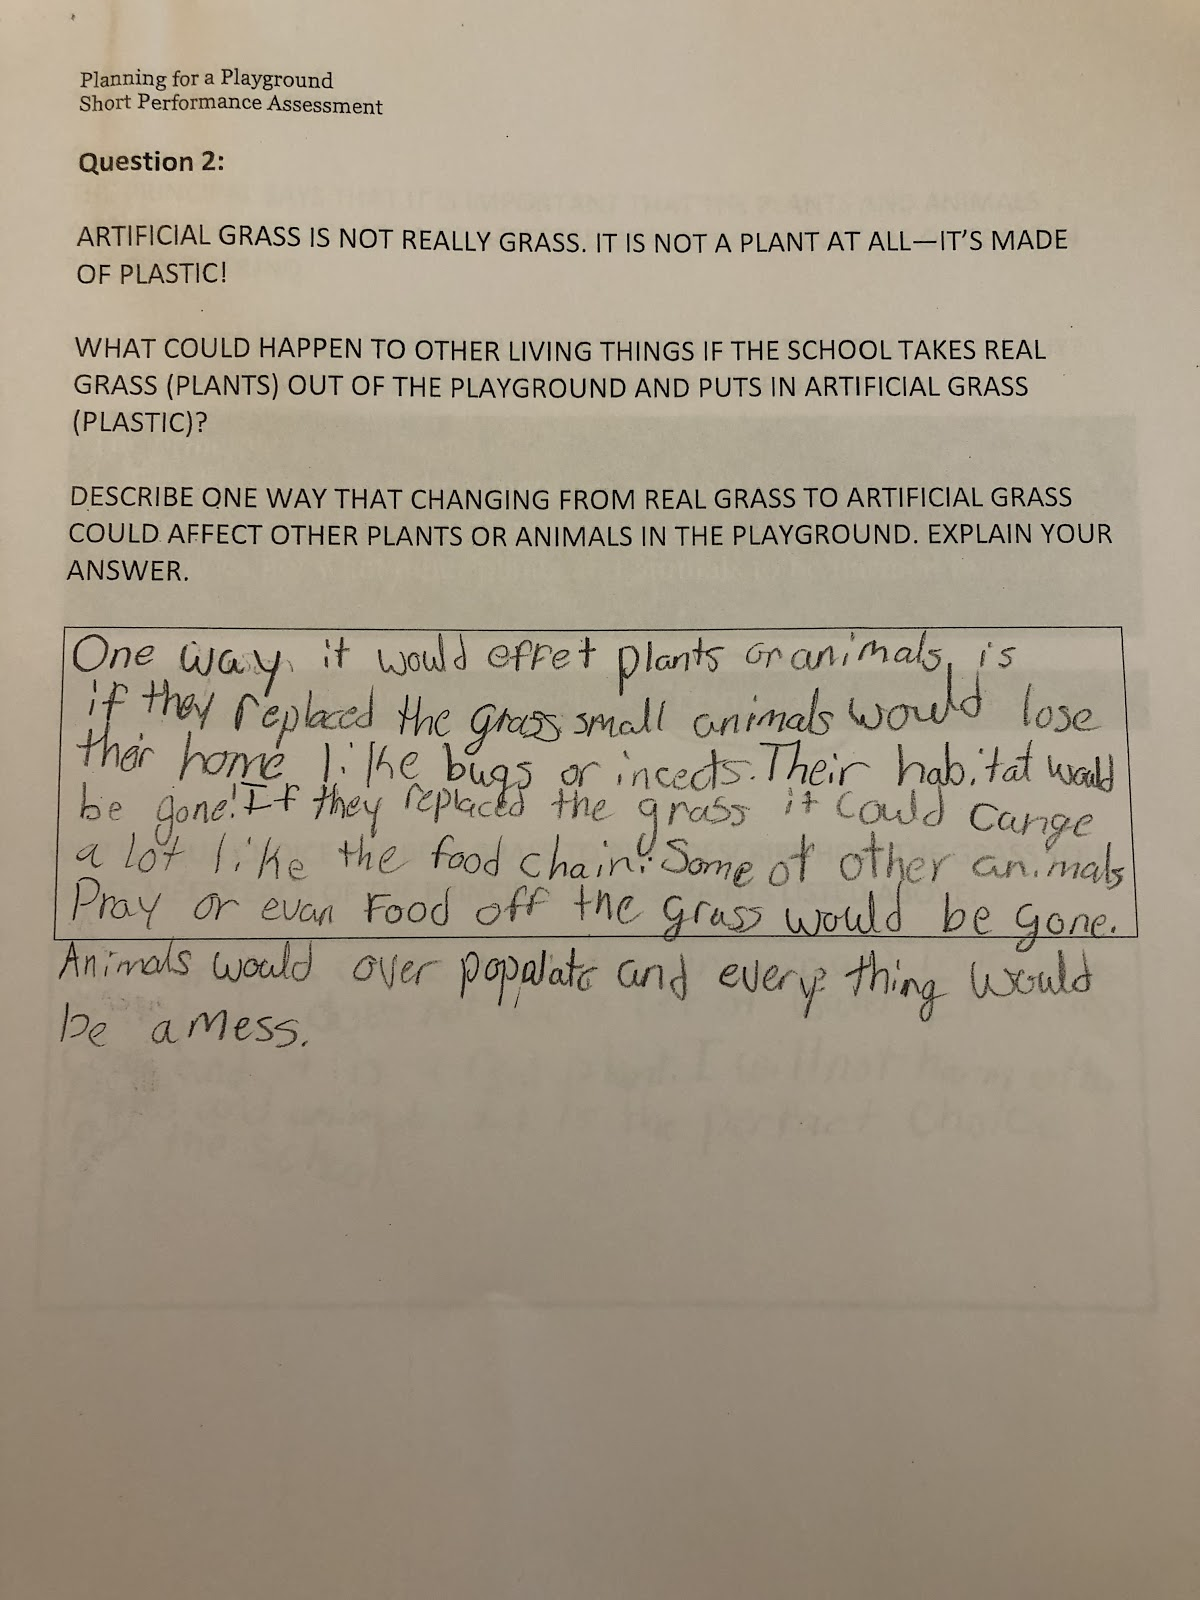 Planning for a Playground
Short Performance Assessment
Question 2:
ARTIFICIAL GRASS IS NOT REALLY GRASS. IT IS NOT A PLANT AT ALL—IT'S MADE
OF PLASTIC!
WHAT COULD HAPPEN TO OTHER LIVING THINGS IF THE SCHOOL TAKES REAL
GRASS (PLANTS) OUT OF THE PLAYGROUND AND PUTS IN ARTIFICIAL GRASS
(PLASTIC)?
DESCRIBE ONE WAY THAT CHANGING FROM REAL GRASS TO ARTIFICIAL GRASS
COULD AFFECT OTHER PLANTS OR ANIMALS IN THE PLAYGROUND. EXPLAIN YOUR
ANSWER.
One way it would effet plants or animals, is
if they replaced the grass small animals would lose
their home like bugs or incects. Their habitat would
be gone! If they replaced the grass it could cange
a lot like the food chain! Some of other animals
Pray or evan Food off the grass would be gone.
Animals would over popalate and every thing would
be a mess.